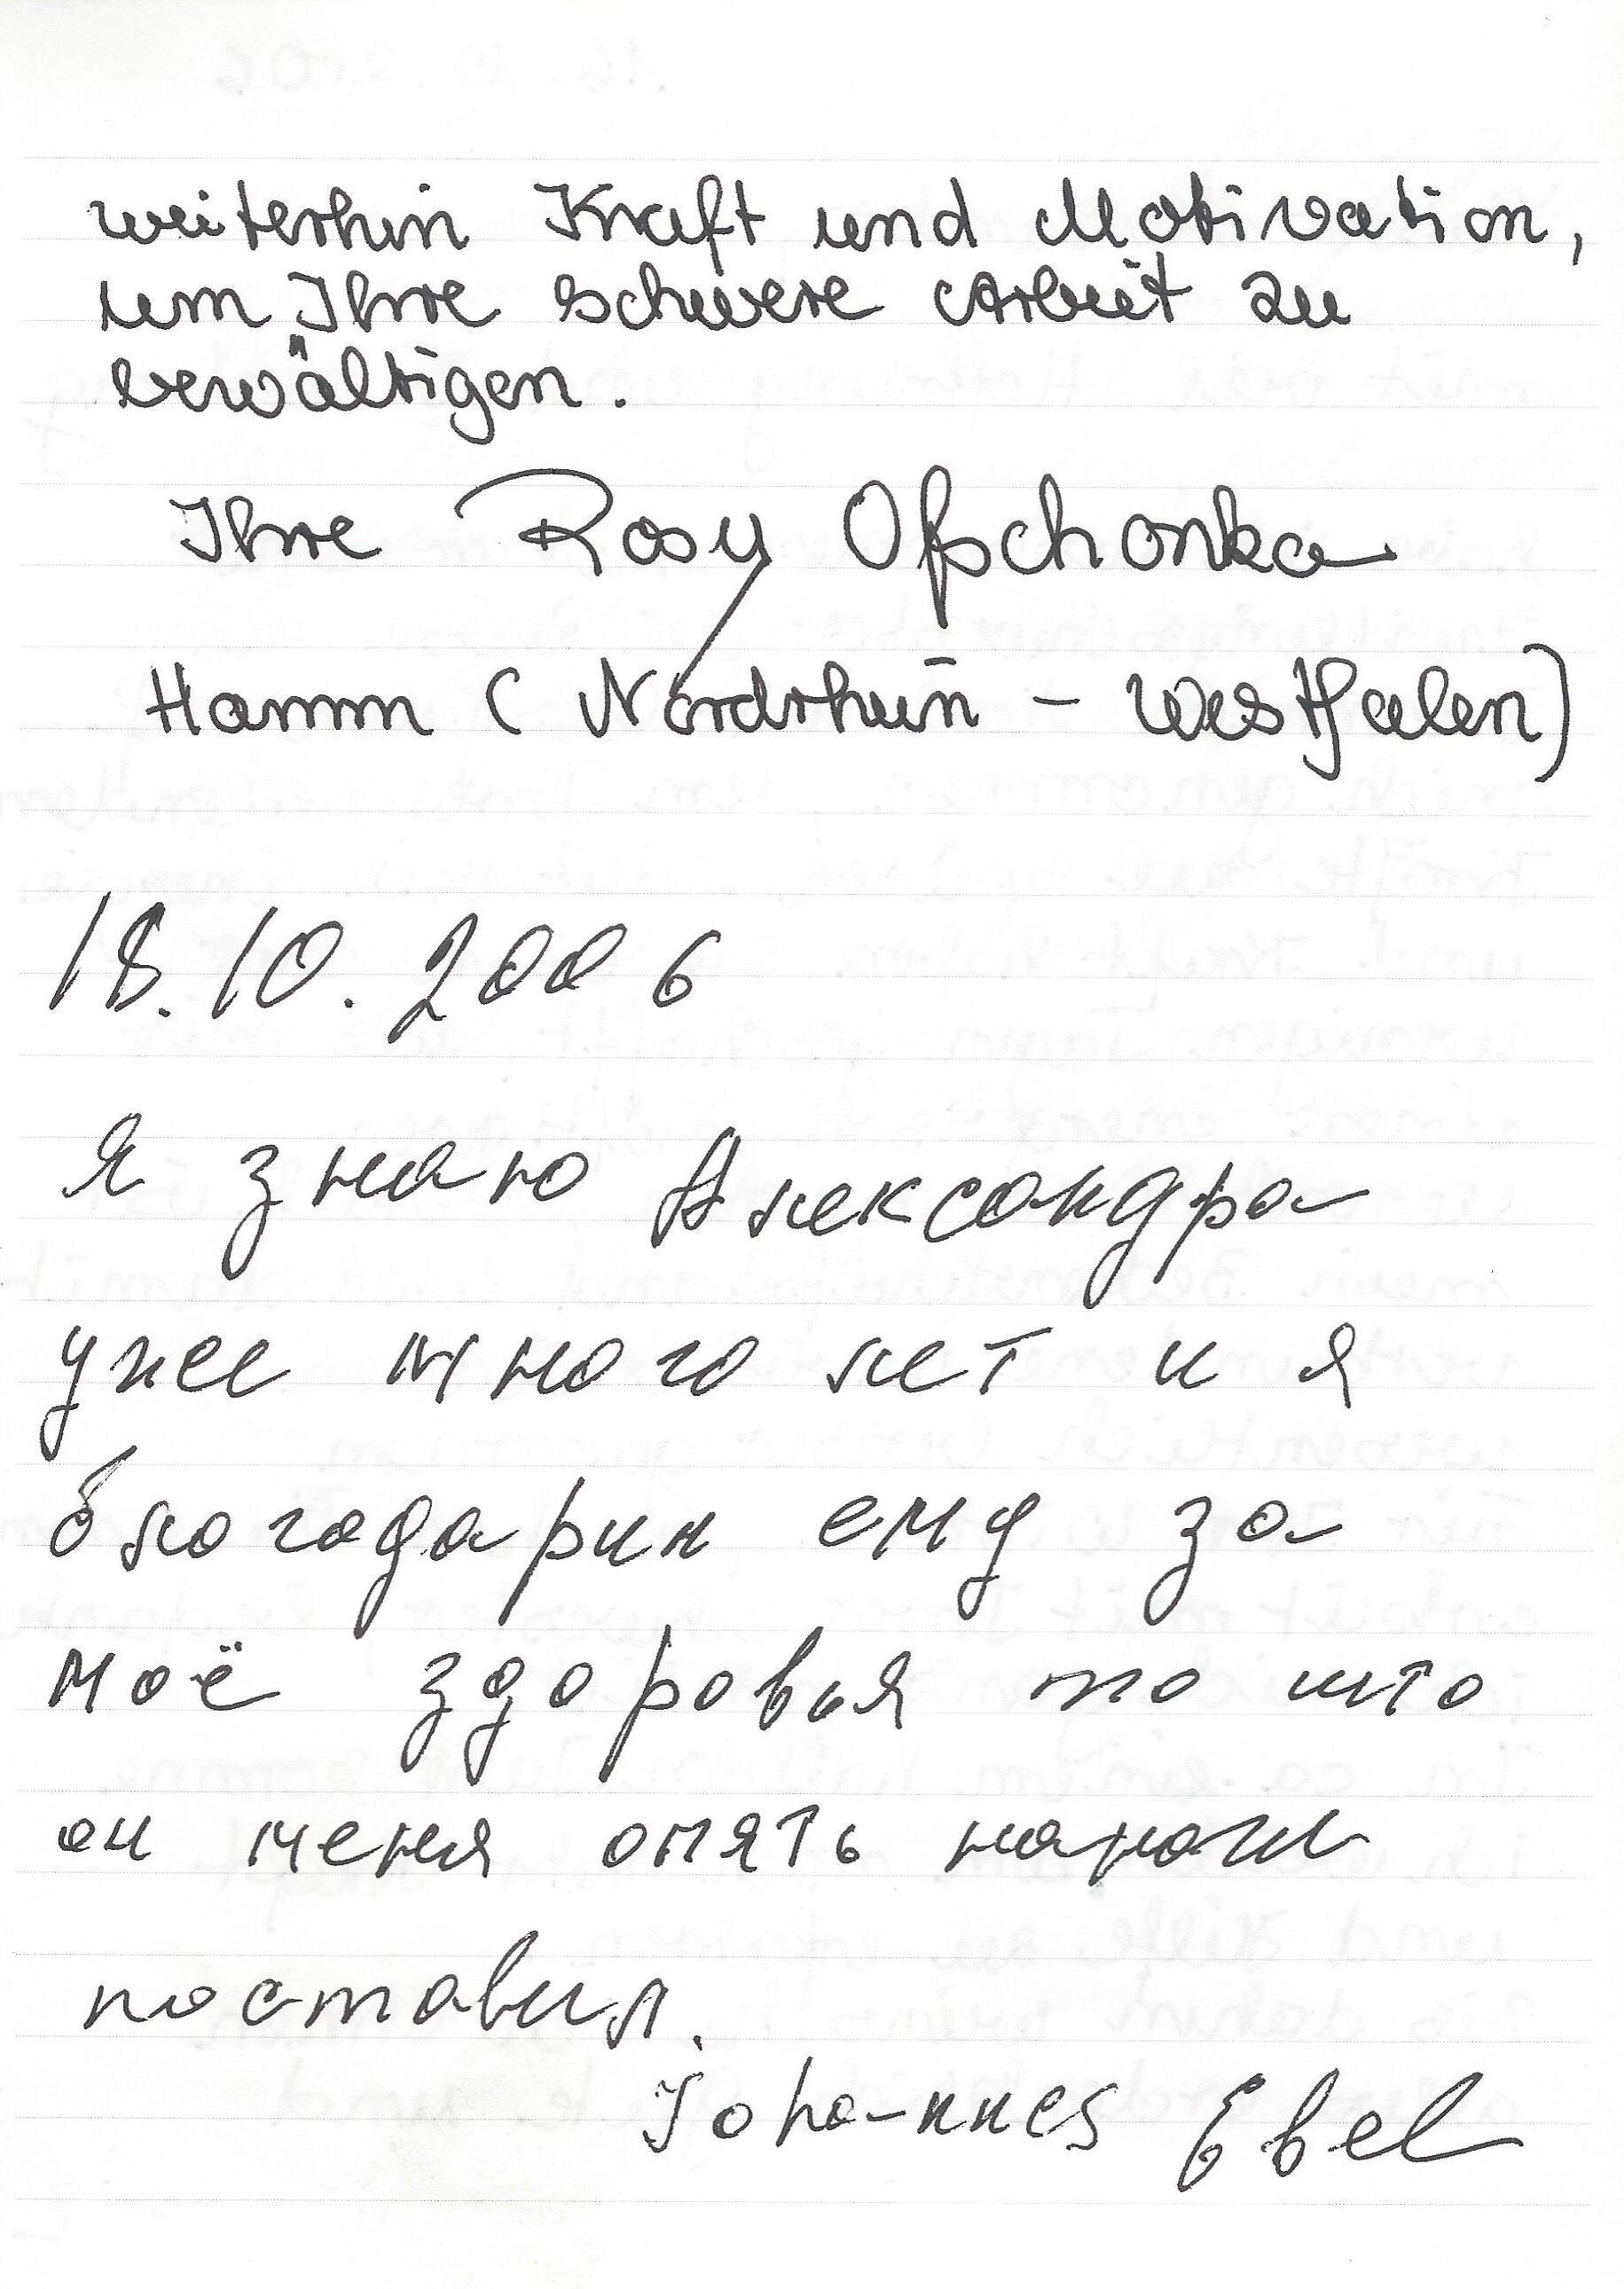 weiterhin Kraft und Motivation,
um Ihre schwere Arbeit zu
bewältigen.
Ihre Rosy Ofschonka
Hamm (Nordrhein - Westfalen)
18.10.2006
Я знаю Александра
уже много лет и я
благодарин ему за
моё здоровья то што
он меня опять наноги
поставил.
Johannes Ebel